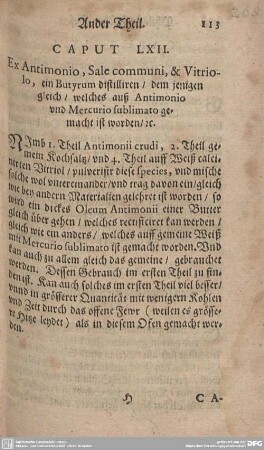 Ander Theil. 113
CAPUT LXII.
Ex Antimonio, Sale communi, & Vitrio-
lo, ein Butyrum distilliren / dem jenigen
gleich / welches auß Antimonio
und Mercurio sublimato ge-
macht ist worden / ꝛc.
NImb 1. Theil Antimonii crudi, 2. Theil ge-
mein Kochsaltz / und 4. Theil auff Weiß calci-
nirten Vitriol / pulverisir diese species, und mische
solche wol untereinander / und trag davon ein / gleich
wie bey andern Materialien gelehret ist worden / so
wird ein dickes Oleum Antimonii einer Butter
gleich über gehen / welches rectificiret kan werden /
gleich wie ein anders / welches auff gemeine Weiß
mit Mercurio sublimato ist gemacht worden. Und
kan auch zu allem gleich das gemeine / gebrauchet
werden. Dessen Gebrauch im ersten Theil zu fin-
den ist. Kan auch solches im ersten Theil viel besser /
unnd in grösserer Quantität mit wenigern Kohlen
und Zeit durch das offene Fewr (weilen es grösse-
re Hitze leydet) als in diesem Ofen gemacht wer-
den.
H CA-